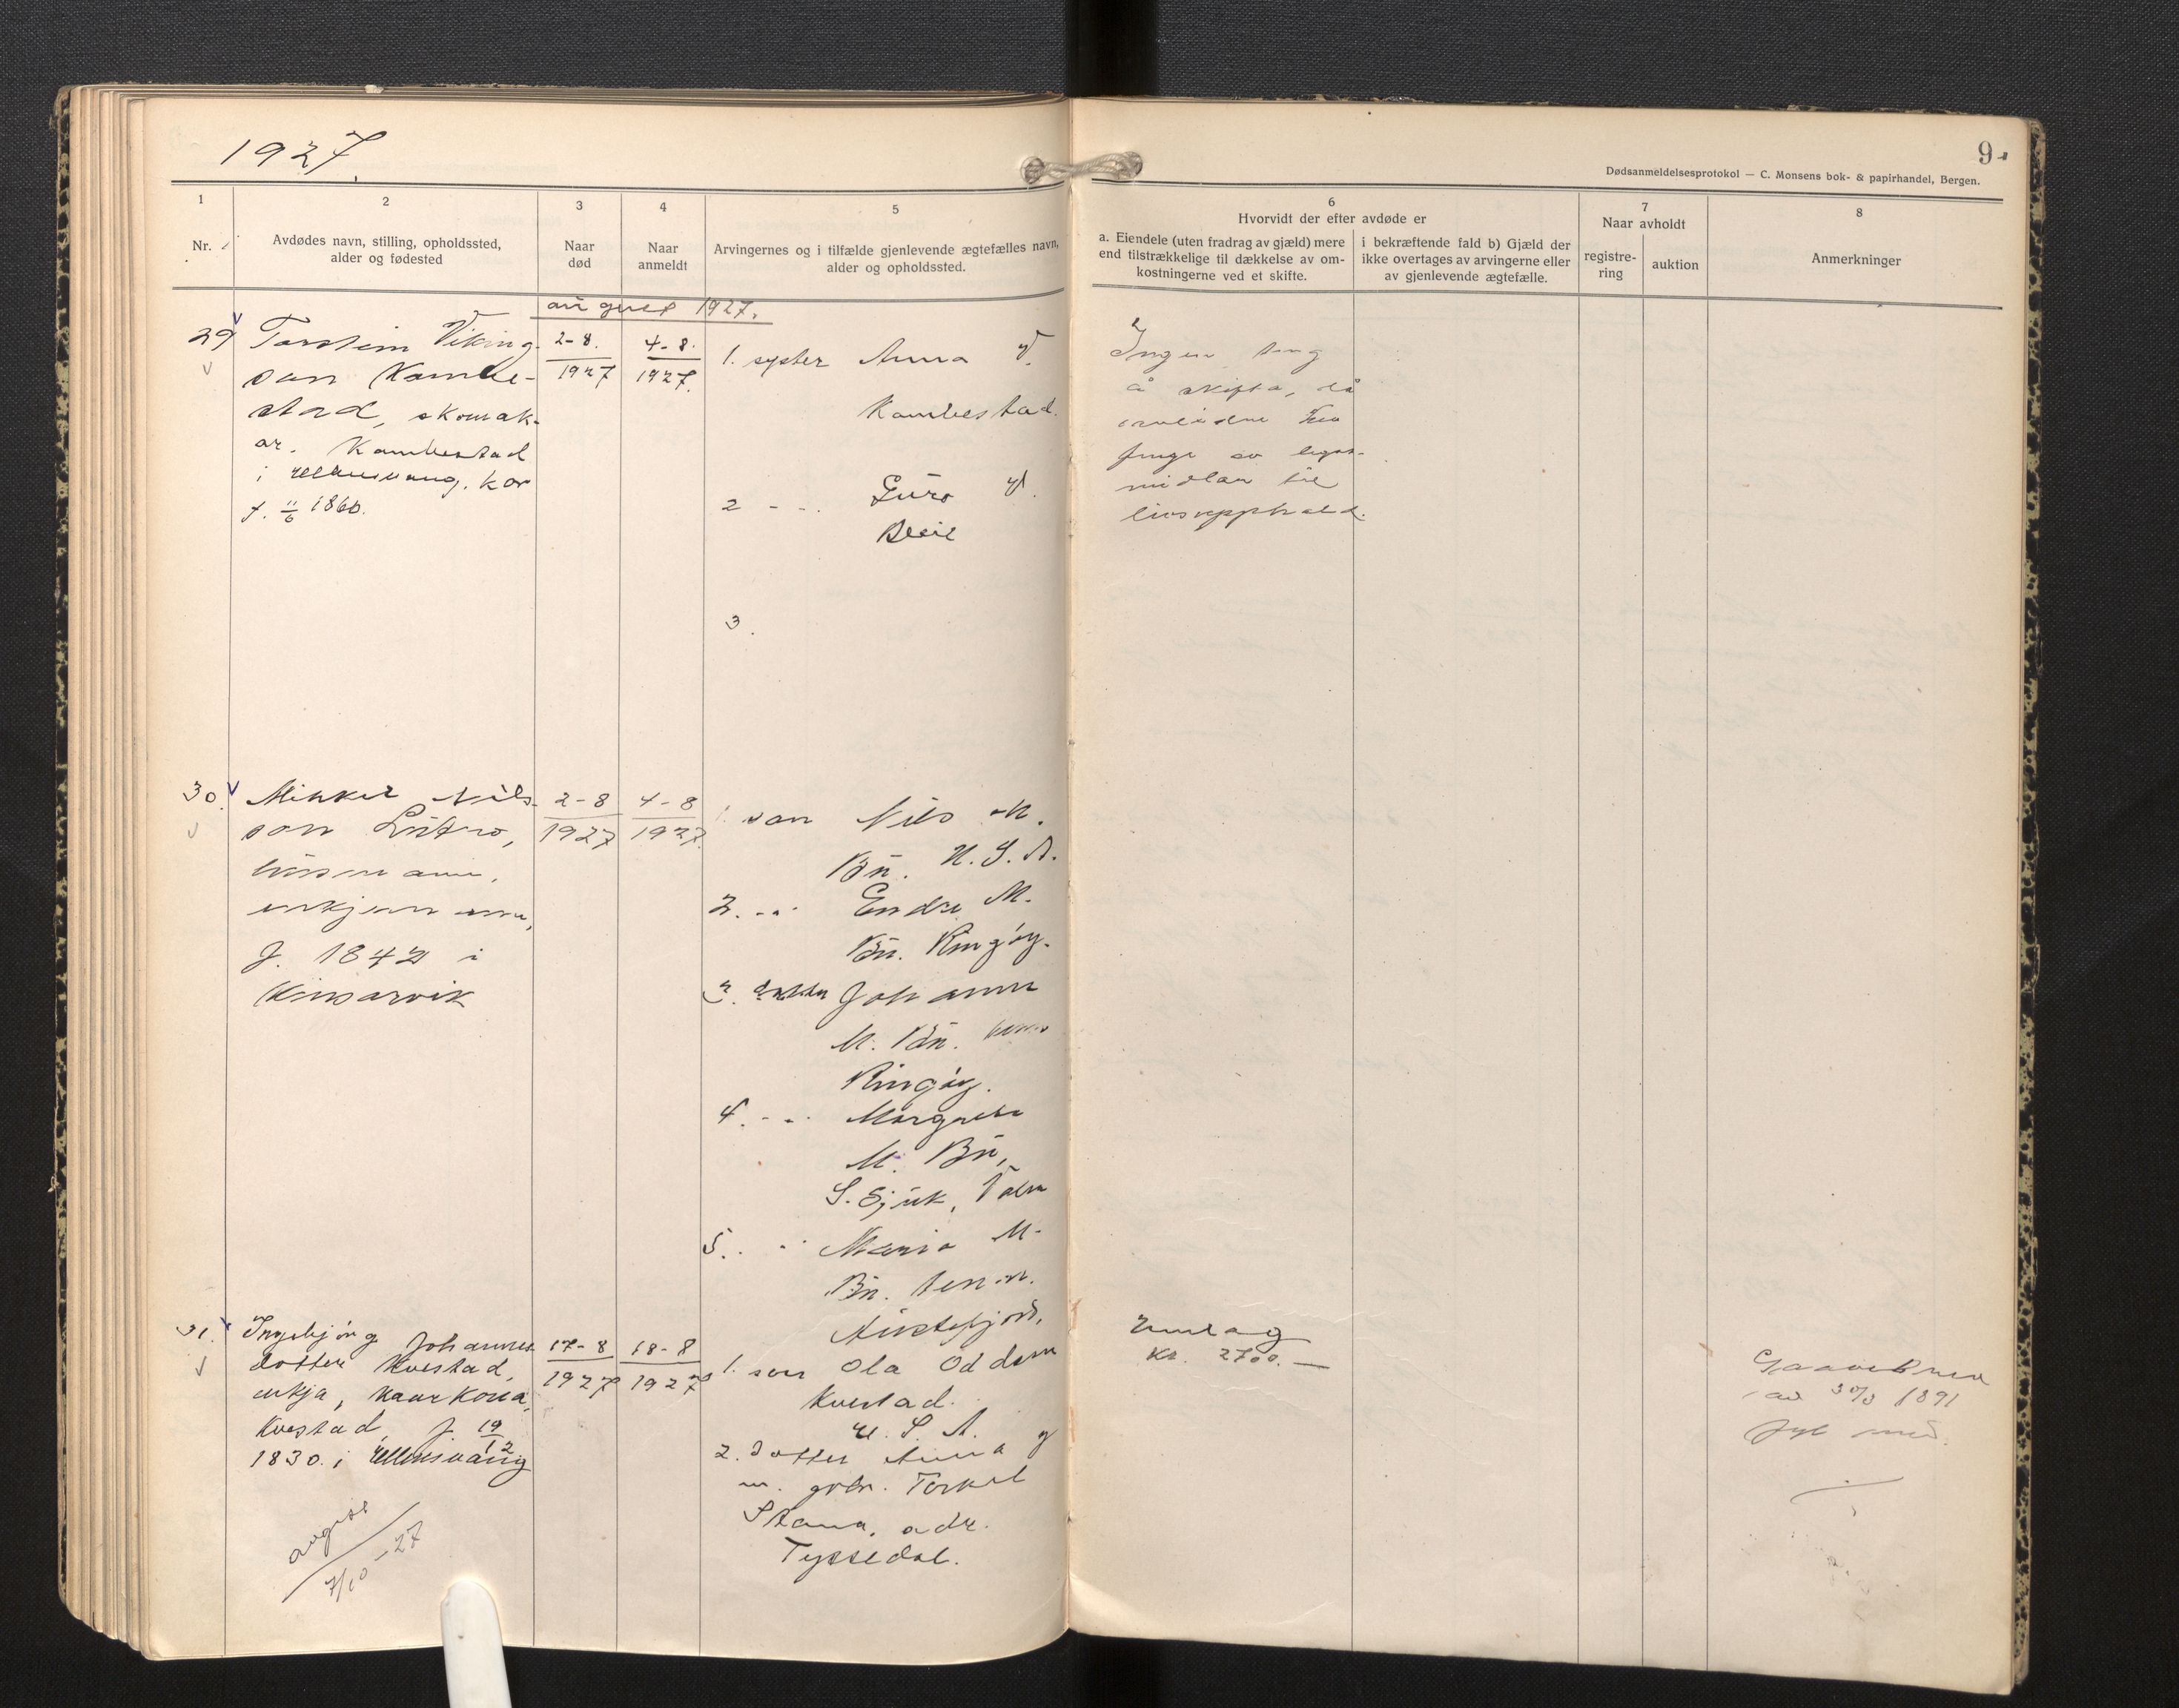 1927.
9
Dødsanmeldelsesprotokol — C. Monsens bok- & papirhandel, Bergen.
1
2
3
4
5
6
7
8
Nr.
Avdødes navn, stilling, opholdssted,
alder og fødested
Naar
død
Naar
anmeldt
Arvingernes og i tilfælde gjenlevende ægtefælles navn,
alder og opholdssted.
Hvorvidt der efter avdøde er
a. Eiendele (uten fradrag av gjæld) mere
end tilstrækkelige til dækkelse av om-
kostningerne ved et skifte.
i bekræftende fald b) Gjæld der
ikke overtages av arvingerne eller
av gjenlevende ægtefælle.
Naar avholdt
registre-
ring
auktion
Anmerkninger
august 1927.
29
Torstein Viking-
son Kambe-
stad, skomak-
ar. Kambestad
i Ullensvang.
f. 11/6 1860.
2-8.
1927
4-8.
1927.
1. syster Anna V.
Kambestad.
2 - - . Guro V.
Bleie
3.
Ingen ting
å skifta, då
fenge av
midlar til
livsupphald.
30.
Mikkel Nils-
son Lutro,
husmann,
enkjemann,
f. 1842 i
Kinsarvik
2-8
1927
4-8
1927.
1. son Nils M.
Bu. U.S.A.
2. - . Endre M.
Bu. Ringøy.
3. dotter Johanna
M. Bu.
Ringøy.
4. - - . Margreta
M. Bu,
S.
5. - . Maria M.
Bu.
31.
Ingebjørg Johannes
dotter Kvestad,
enkja, kaarkona,
Kvestad, f. 19/12
1830. i Ullensvang
17-8
1927
18-8
1927
1. son Ola Oddson
Kvestad.
U. S. A.
2. dotter Anna g
m. gbr. Torkel
Stana, adr.
Tyssedal.
Kr. 2700.—
Gaavebrev
av 30/3 1891
fyl med.
avgjort
7/10-27